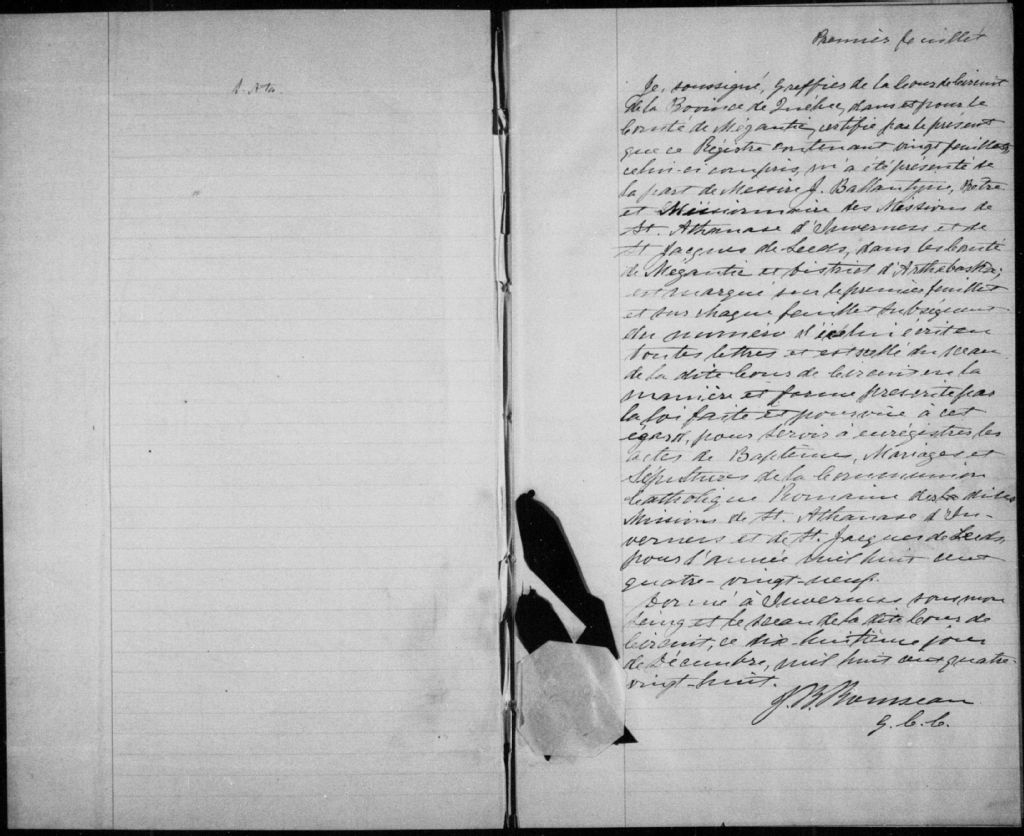 Premier feuillet
Je, soussigné, Greffier de la Cour de Circuit
de la Province de Québec, dans et pour le
Comté de Mégantic, certifie par le présent
que ce Régistre contenant vingt feuillets
celui-ci compris, m'a été présenté de
la part de Messire J. Ballantyne, Prêtre
et Missionnaire des Missions de
St. Athanase d'Inverness et de
St Jacques de Leeds, dans le Comté
de Mégantic et District d'Arthabaska;
est marqué sur le premier feuillet
et sur chaque feuillet subséquent
du numéro d'icelui écrit en
toutes lettres et est scellé du sceau
de la dite Cour de Circuit en la
manière et forme prescrite par
la loi faite et pourvue à cet
égard, pour servir à enrégistrer les
actes de Baptêmes, Mariages et
Sépultures de la Communion
Catholique Romaine des dites
Missions de St. Athanase d'In-
verness et de St. Jacques de Leeds
pour l'année mil huit cent
quatre-vingt-neuf.
Donné à Inverness sous mon
seing et le sceau de la dite Cour de
Circuit, ce dix-huitième jour
de Décembre, mil huit cent quatre-
vingt-huit.
J. B. Rousseau
G. C. C.